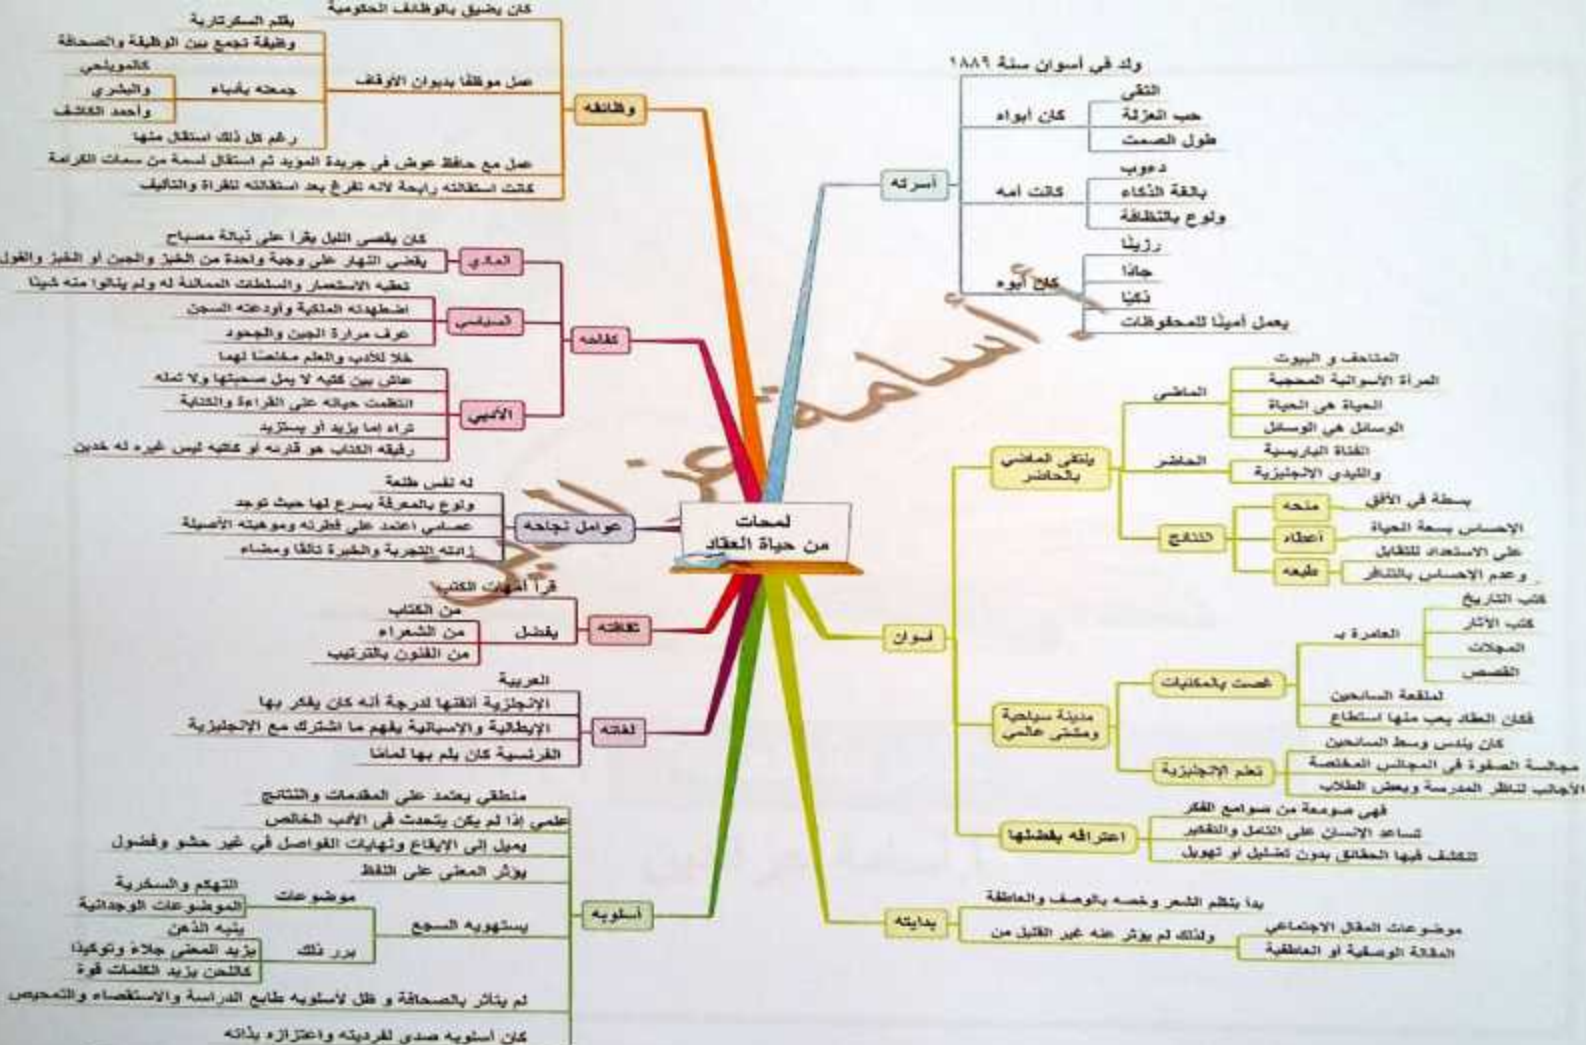 لمحات
من حياة العقاد
أسرته
ولد في أسوان سنة ١٨٨٩
كان أبواه
التقى
حب العزلة
طول الصمت
كانت أمه
دءوب
بالغة الذكاء
ولوع بالنظافة
كان أبوه
رزينًا
جادًا
ذكيًا
يعمل أمينًا للمحفوظات
أسوان
يلتقى الماضي
بالحاضر
الماضى
المتاحف و البيوت
المرأة الأسوانية المحجبة
الحياة هى الحياة
الوسائل هى الوسائل
الحاضر
الفتاة الباريسية
والليدى الانجليزية
النتائج
منحه
بسطة في الأفق
أعطاه
الإحساس بسعة الحياة
طبعه
على الاستعداد للتقابل
وعدم الاحساس بالتنافر
مدينة سياحية
ومشتى عالمي
غصت بالمكتبات
العامرة بـ
كتب التاريخ
كتب الآثار
المجلات
القصص
لمنفعة السائحين
فكان العقاد يعب منها استطاع
تعلم الإنجليزية
كان يندس وسط السائحين
مجالسة الصفوة فى المجالس المختصة
الأجانب لناظر المدرسة وبعض الطلاب
اعترافه بفضلها
فهى صومعة من صوامع الفكر
تساعد الإنسان على التأمل والتفكير
تتكشف فيها الحقائق بدون تضليل او تهويل
بدايته
بدأ ينظم الشعر وخصه بالوصف والعاطفة
ولذلك لم يؤثر عنه غير القليل من
موضوعات المقال الاجتماعي
المقالة الوصفية او العاطفية
وظائفه
كان يضيق بالوظائف الحكومية
عمل موظفًا بديوان الأوقاف
بقلم السكرتارية
وظيفة تجمع بين الوظيفة والصحافة
جمعته بأدباء
كالمويلحي
والبشري
وأحمد الكاشف
رغم كل ذلك استقال منها
عمل مع حافظ عوض فى جريدة المؤيد ثم استقال لسمة من سمات الكرامة
كانت استقالته رابحة لأنه تفرغ بعد استقالته للقراة والتأليف
كفاحه
المادي
كان يقضى الليل يقرأ على ذبالة مصباح
يقضي النهار على وجبة واحدة من الخبز والجبن أو الخبز والفول
السياسي
تعقبه الاستعمار والسلطات الممالئة له ولم ينالوا منه شيئا
اضطهدته الملكية وأودعته السجن
عرف مرارة الجبن والجحود
الأدبي
خلا للأدب والعلم مخلصًا لهما
عاش بين كتبه لا يمل صحبتها ولا تمله
انتظمت حياته على القراءة والكتابة
تراه إما يزيد أو يستزيد
رفيقه الكتاب هو قارئه أو كاتبه ليس غيره له خدين
عوامل نجاحه
له نفس طلعة
ولوع بالمعرفة يسرع لها حيث توجد
عصامي اعتمد على فطرته وموهبته الأصيلة
زادته التجربة والخبرة تألقًا ومضاء
ثقافته
قرأ أمهات الكتب
يفضل
من الكتاب
من الشعراء
من الفنون بالترتيب
لغاته
العربية
الإنجلزية أتقنها لدرجة أنه كان يفكر بها
الإيطالية والإسبانية يفهم ما اشترك مع الإنجليزية
الفرنسية كان يلم بها لمامًا
أسلوبه
منطقي يعتمد على المقدمات والنتائج
علمي إذا لم يكن يتحدث فى الأدب الخالص
يميل إلى الإيقاع ونهايات الفواصل في غير حشو وفضول
يؤثر المعنى على اللفظ
يستهويه السجع
موضوعات
التهكم والسخرية
الموضوعات الوجدانية
برر ذلك
ينبه الذهن
يزيد المعنى جلاءً وتوكيدًا
كاللحن يزيد الكلمات قوة
لم يتأثر بالصحافة و ظل لأسلوبه طابع الدراسة والاستقصاء والتمحيص
كان أسلوبه صدى لفرديته واعتزازه بذاته
أ. أسامة عز الدين